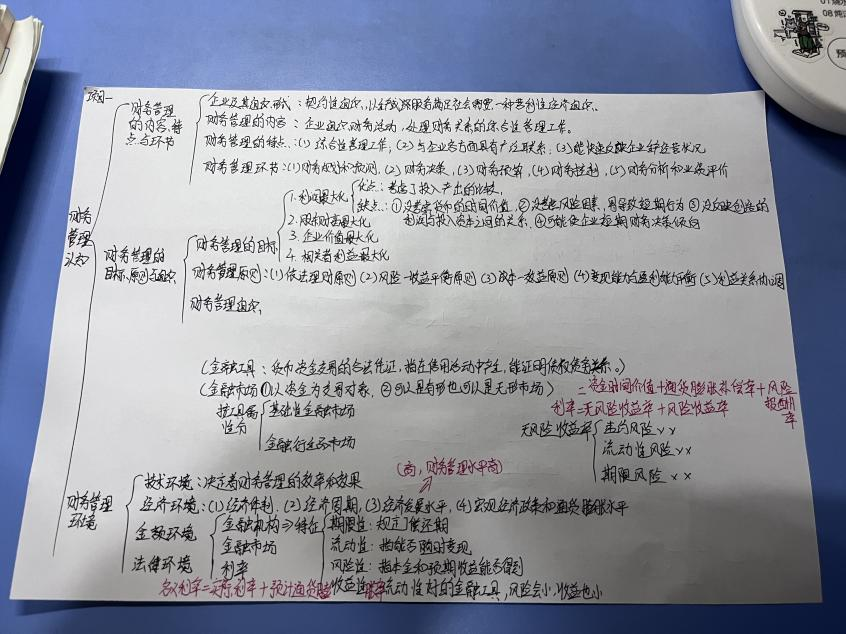 项目一
财务管理认知
财务管理的内容、特点与环节
企业及其组织形式：契约性组织，以生产或服务满足社会需要，一种营利性经济组织。
财务管理的内容：企业组织财务活动，处理财务关系的综合性管理工作。
财务管理的特点：(1) 综合性管理工作，(2) 与企业各方面具有广泛联系，(3) 能快速反映企业生产经营状况
财务管理环节：(1) 财务规划和预测，(2) 财务决策，(3) 财务预算，(4) 财务控制，(5) 财务分析和业绩评价
财务管理的目标、原则与组织
财务管理的目标
1. 利润最大化
优点：考虑了投入产出的比较。
缺点：①没考虑货币的时间价值，②没考虑风险因素，易导致短期行为 ③没反映创造的
利润与投入资本之间的关系，④可能使企业短期财务决策倾向
2. 股东财富最大化
3. 企业价值最大化
4. 相关者利益最大化
财务管理原则：(1) 依法理财原则 (2) 风险—收益平衡原则 (3) 成本—效益原则 (4) 变现能力与盈利能力平衡 (5) 利益关系协调
财务管理组织。
(金融工具：货币资金交易的合法凭证，指在信用活动中产生，能证明债权债务关系。)
(金融市场①以资金为交易对象，②可以是有形也可以是无形市场)
=资金时间价值+通货膨胀补偿率+风险报酬率
利率=无风险收益率+风险收益率
按工具属性分
基础性金融市场
金融衍生品市场
无风险收益率
违约风险××
流动性风险××
期限风险××
(高，财务管理水平高)
财务管理环境
技术环境：决定着财务管理的效率和效果
经济环境：(1) 经济体制，(2) 经济周期，(3) 经济发展水平，(4) 宏观经济政策和通货膨胀水平
金融环境
金融机构⇒特征
期限性：规定了偿还期
金融市场
流动性：指能否随时变现
法律环境
利率
风险性：指本金和预期收益能否得到
名义利率=实际利率+预计通货膨胀率
收益性：流动性好的金融工具，风险会小，收益也小
预